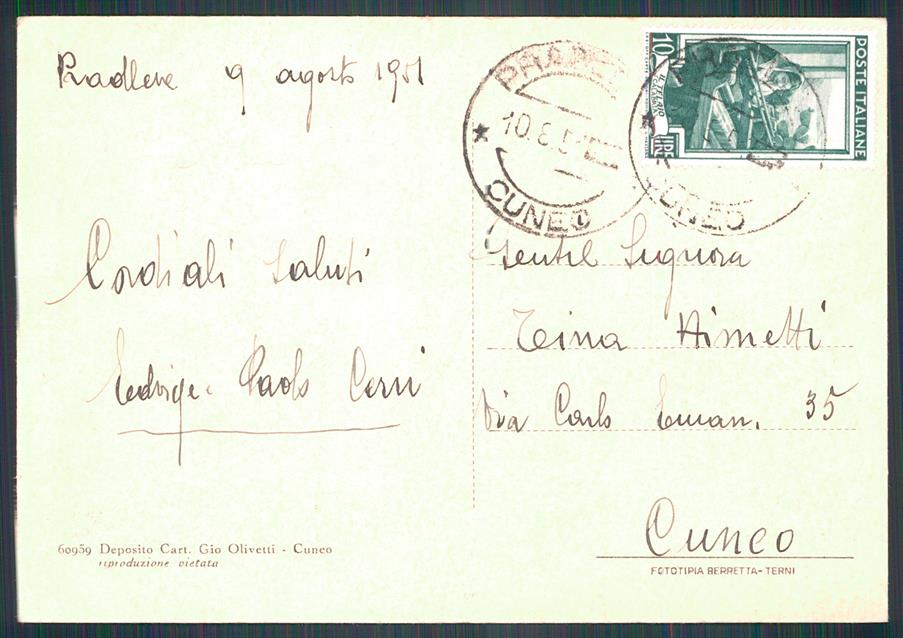 Pradleve 9 agosto 1951
Cordiali saluti
Edvige - Paolo Cerri
60959 Deposito Cart. Gio Olivetti - Cuneo
riproduzione vietata
10.8.51
CUNEO
POSTE ITALIANE
10
LIRE
IL TELAIO
CUNEO
Gentil Signora
Tina Aimetti
Via Carlo Eman. 35
Cuneo
FOTOTIPIA BERRETTA-TERNI